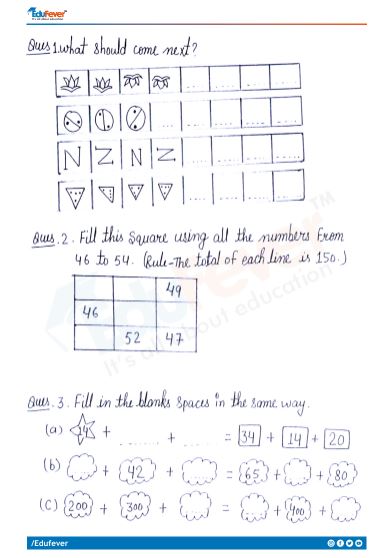 EduFever
It's all about education
Ques 1. What should come next?
N Z N Z
Ques. 2. Fill this square using all the numbers from
46 to 54. (Rule-The total of each line is 150.)
49
46
52 47
Ques. 3. Fill in the blanks spaces in the same way.
(a) 34 + ........ + ........ = 34 + 14 + 20
(b) + 42 + = 65 + + 80
(c) 200 + 300 + = + 400 +
TM
It's all about education
/Edufever